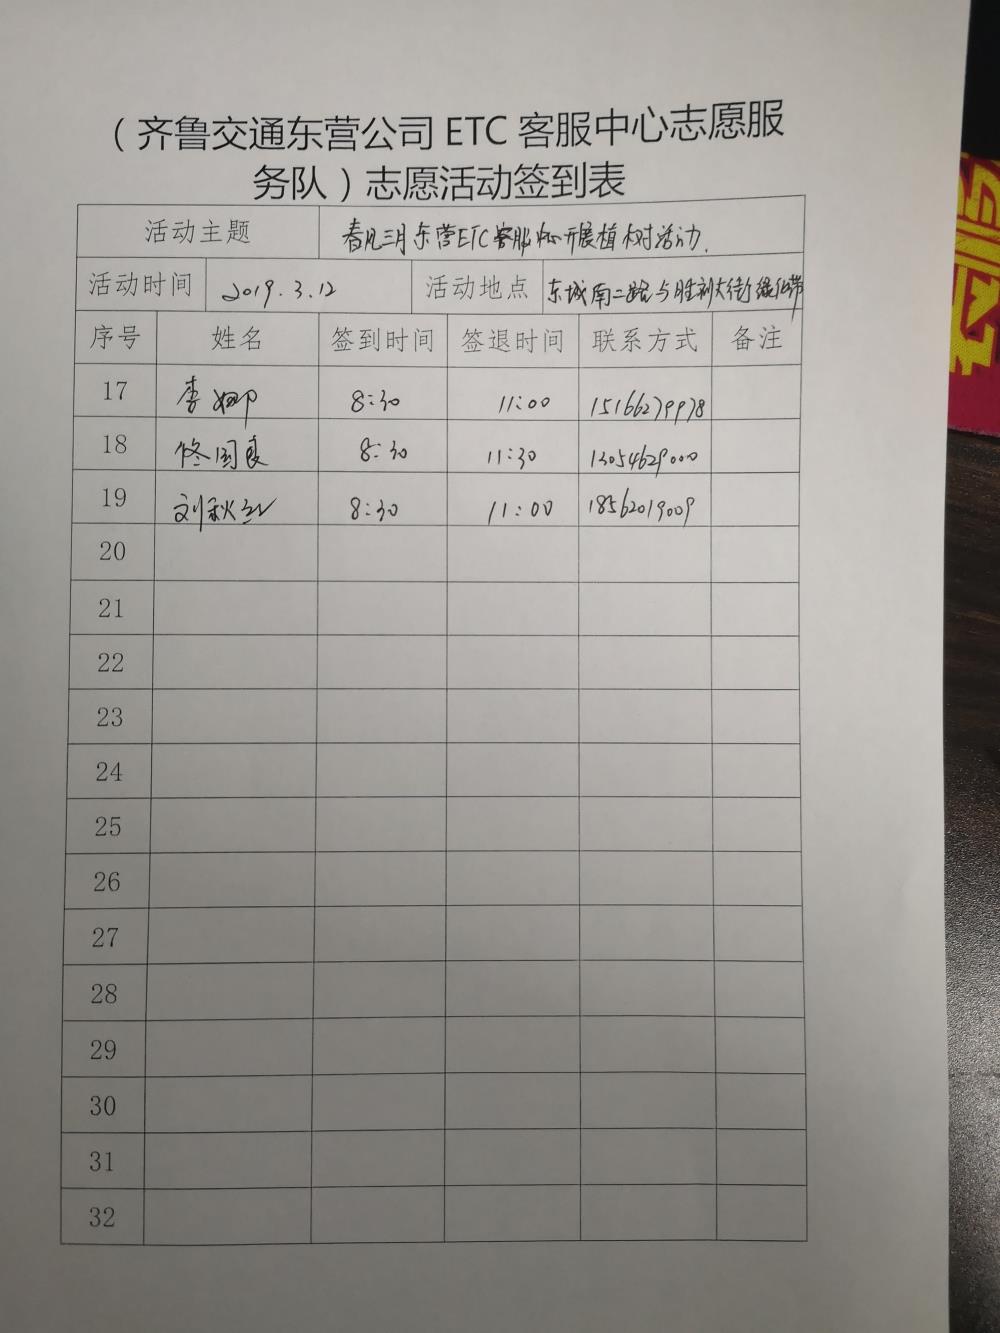 （齐鲁交通东营公司 ETC 客服中心志愿服
务队）志愿活动签到表
活动主题 春风三月东营ETC客服中心开展植树活动.
活动时间 2019.3.12 活动地点 东城南二路与胜利大街绿化带
序号 姓名 签到时间 签退时间 联系方式 备注
17 李娜 8:30 11:00 15166279978
18 佟国良 8:30 11:30 13054629000
19 刘秋红 8:30 11:00 18562019009
20
21
22
23
24
25
26
27
28
29
30
31
32